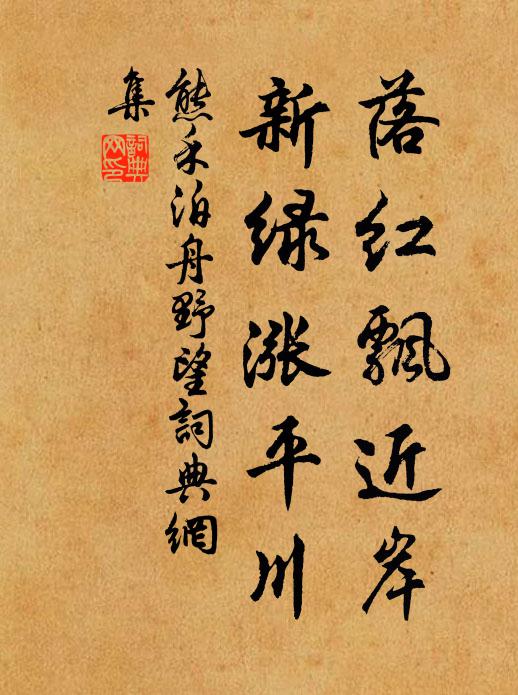 落红飘近岸
新绿涨平川
熊禾泊舟野望詞典網
集
詞典
网印